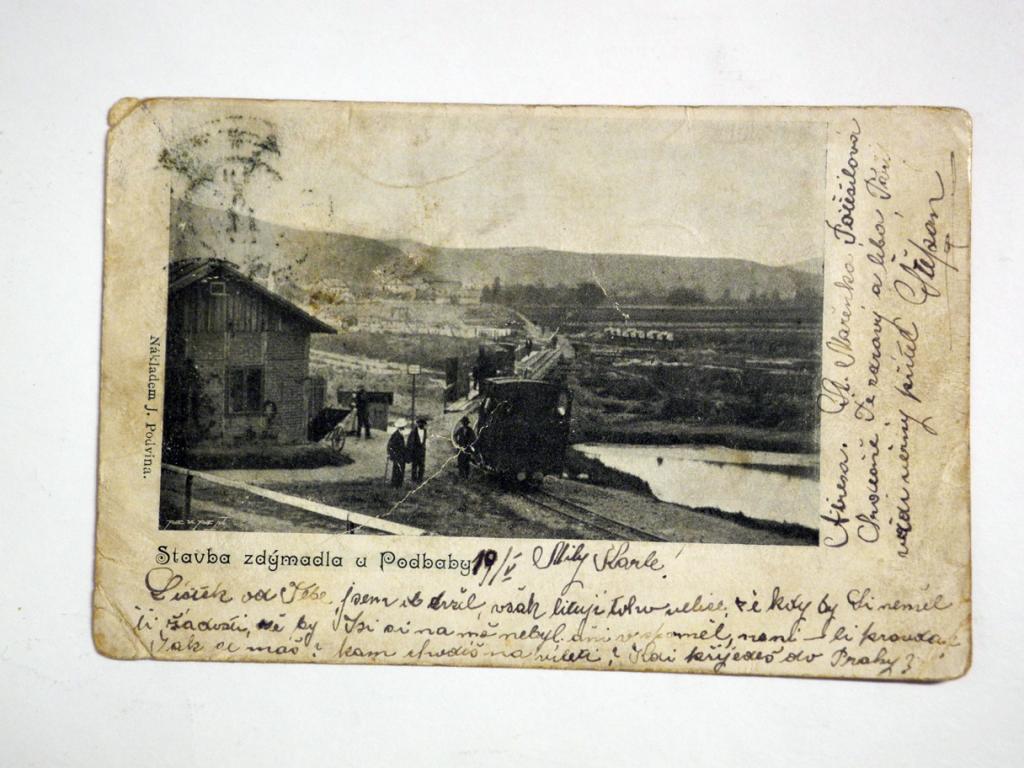 Nákladem J. Podvina.
Stavba zdýmadla u Podbaby
19/V Milý Karle!
Lístek od Tebe jsem obdržel, však lituji toho velice, že kdy by Ti neměl
ti žádosti, že by Jsi si na mě nebyl ani vzpoměl, není-li pravda?
Jak se máš? kam chodíš na výlet? Kdi přijedeš do Prahy?
Adresa. Sl. Mařenka
a líbá Tvůj
vždi věrný přítel Štěpan